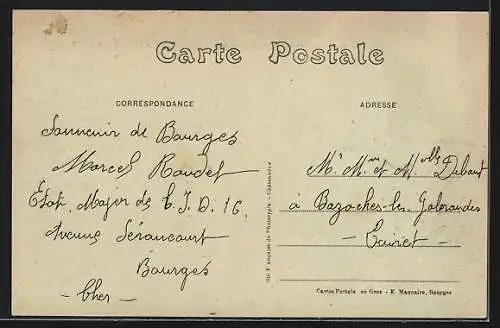 Carte Postale
CORRESPONDANCE
ADRESSE
Souvenir de Bourges
Marcel Roudet
État Major de C.I.D. 16.
Avenue Séraucourt
Bourges
- Cher -
Mr Mme et Mlle Debant
à Bazoches-les Galerandes
- Loiret -
Sté Française de Phototypie - Châteauroux
Cartes Postale en Gros - E. Maquaire, Bourges